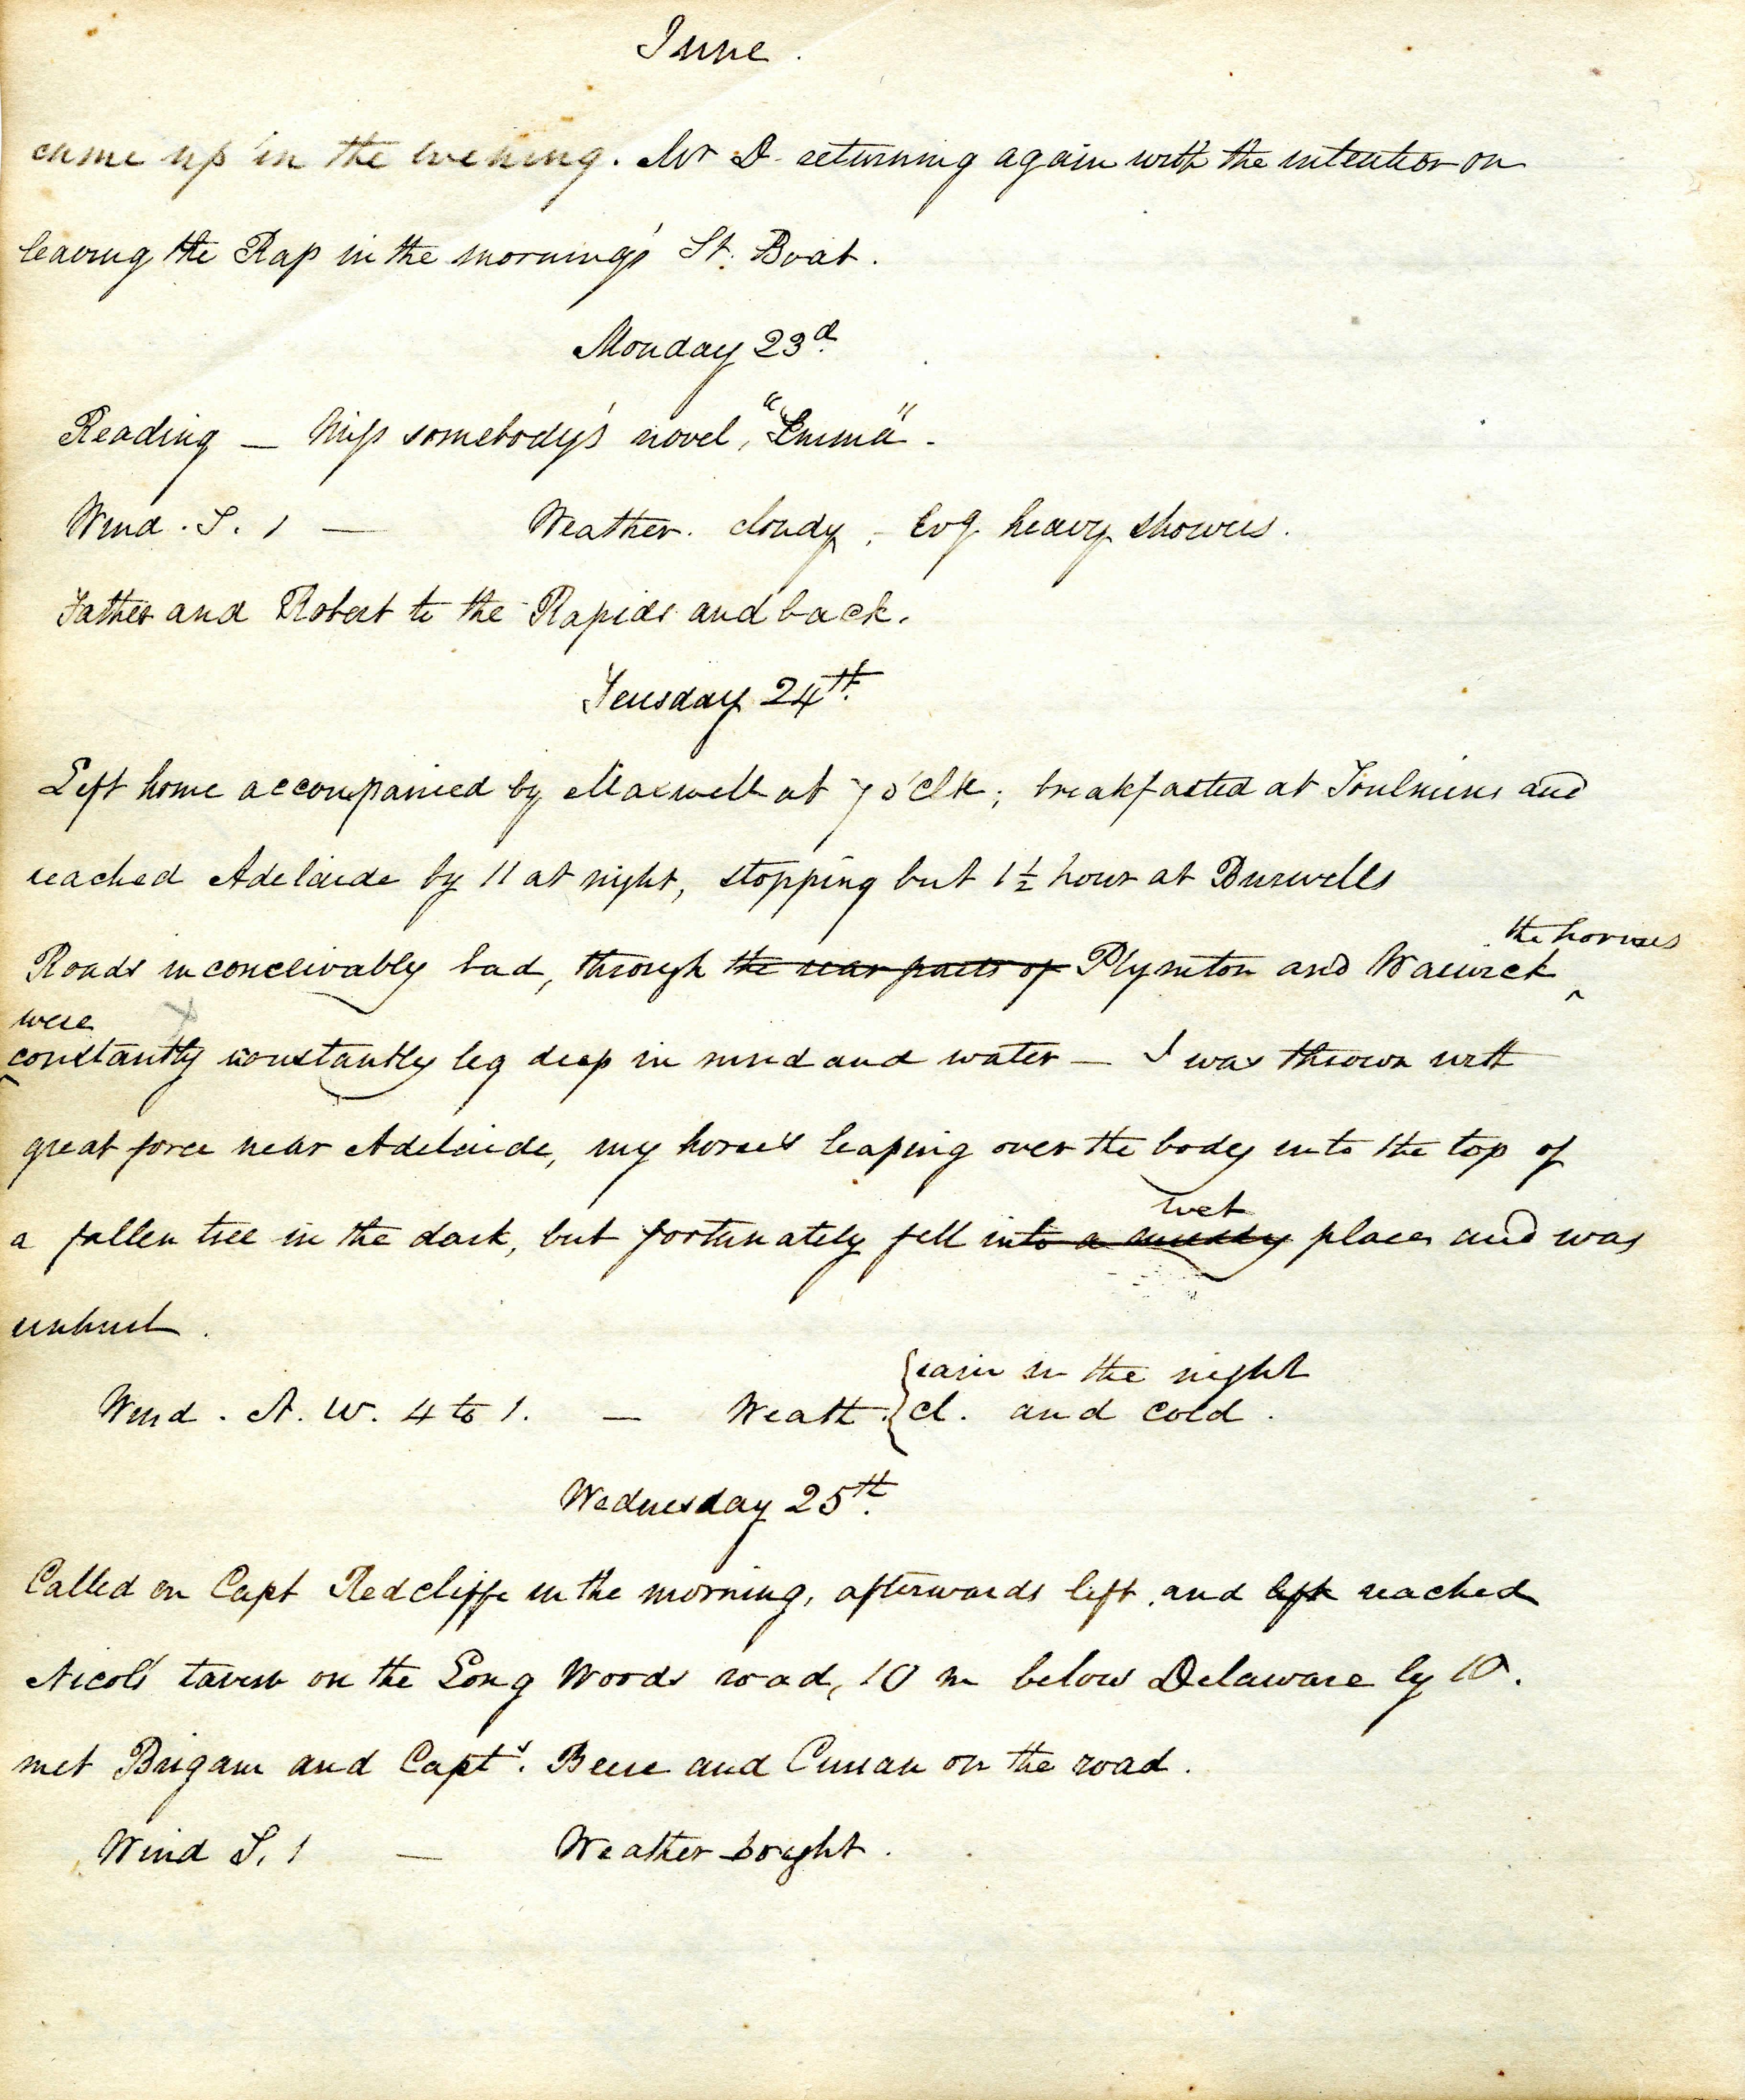 June.
came up in the evening. Mr D. returning again with the intention on
leaving the Rap in the morning's St. Boat.
Monday 23d.
Reading — Miss somebody's novel, "Emma" -
Wind. S. 1 — Weather. cloudy, - Evg. heavy showers.
Father and Robert to the Rapids and back.
Teusday 24th.
Left home accompanied by Maxwell at 7 o'clk; breakfasted at Toulmins and
reached Adelaide by 11 at night, stopping but 1½ hour at Burwells
the horses
Roads inconceivably bad, through the rear parts of Plymton and Warwick ^
were
^ constantly constantly leg deep in mud and water — I was thrown with
great force near Adelaide, my horse's leaping over the body into the top of
wet
a fallen tree in the dark, but fortunately fell into a muddy place and was
unhurt.
rain in the night
Wind. N. W. 4 to 1. — Weath. { cl. and cold.
Wednesday 25th.
Called on Capt Redcliffe in the morning, afterwards left, and left reached
Nicol's tavern on the Long Woods road, 10 m below Delaware by 10.
met Brigam and Capts. Beere and Curran on the road.
Wind S. 1 — Weather bright.